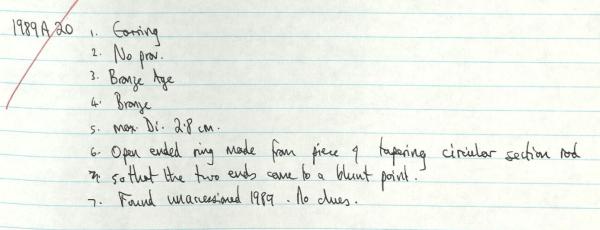 1989A20 1. Earring
2. No prov.
3. Bronze Age
4. Bronze
5. max. Di. 2.8 cm.
6. Open ended ring made from piece of tapering circular section rod
so that the two ends come to a blunt point.
7. Found unaccessioned 1989. No clues.